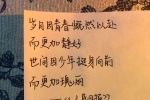 岁月因青春慨然以赴
而更加静好
世间因少年挺身向前
而更加瑰丽